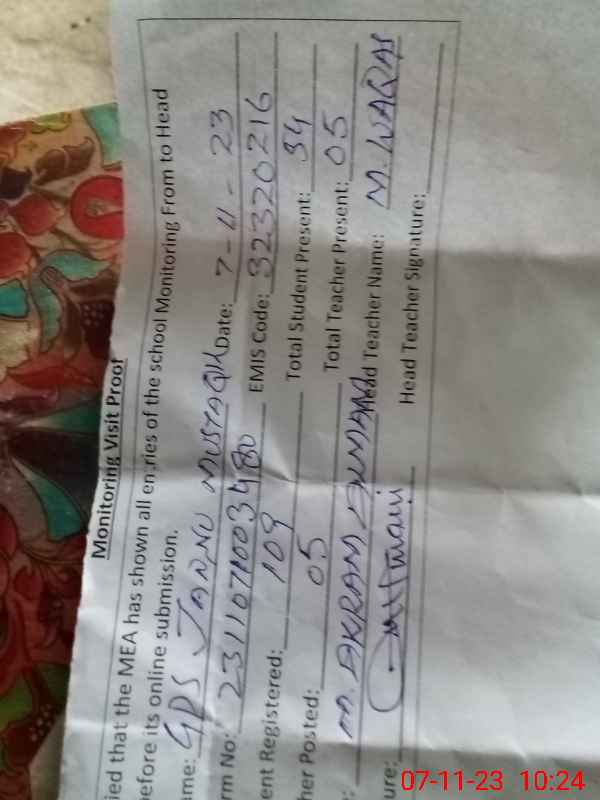 Monitoring Visit Proof
ied that the MEA has shown all entries of the school Monitoring From to Head
efore its online submission.
ame: GPS JANNU Date: 7-11-23
rm No: EMIS Code: 32320216
ent Registered: 109 Total Student Present: 34
her Posted: 05 Total Teacher Present: 05
: M. AKRAM Head Teacher Name: M. WAQAS
ure: Head Teacher Signature:
07-11-23 10:24